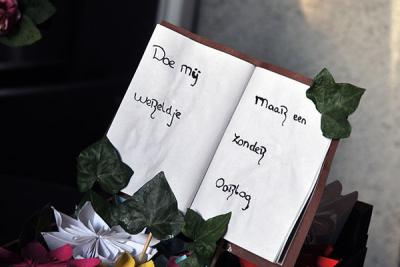 Doe mij
Wereldje
Maar een
zonder
Oorlog